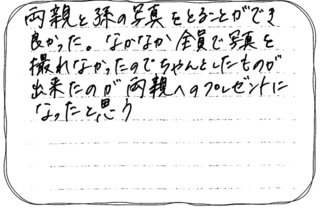 両親と孫の写真をとることができ
良かった。なかなか全員で写真を
撮れなかったのでちゃんとしたものが
出来たのが両親へのプレゼントに
なったと思う